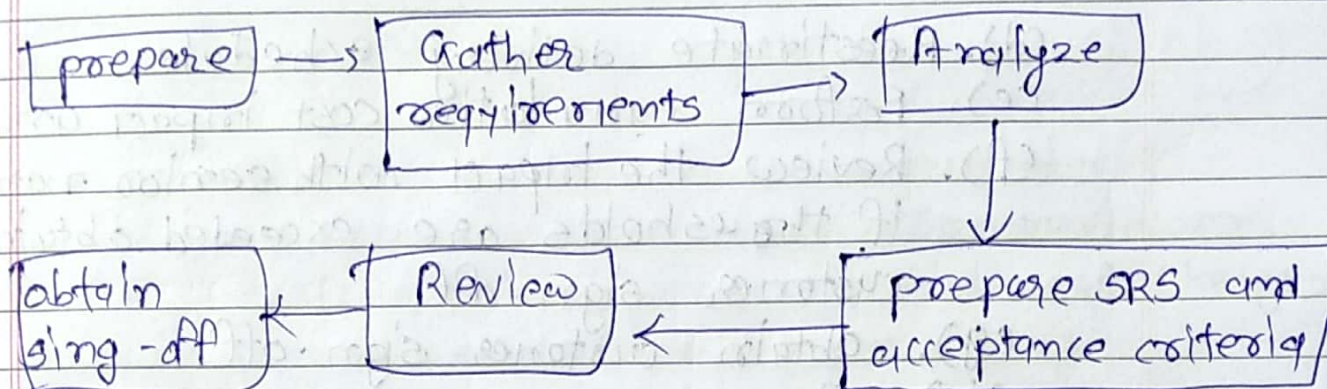 prepare
Gather
requirements
Analyze
prepare SRS and
acceiptance criteria
Review
obtain
sing-off